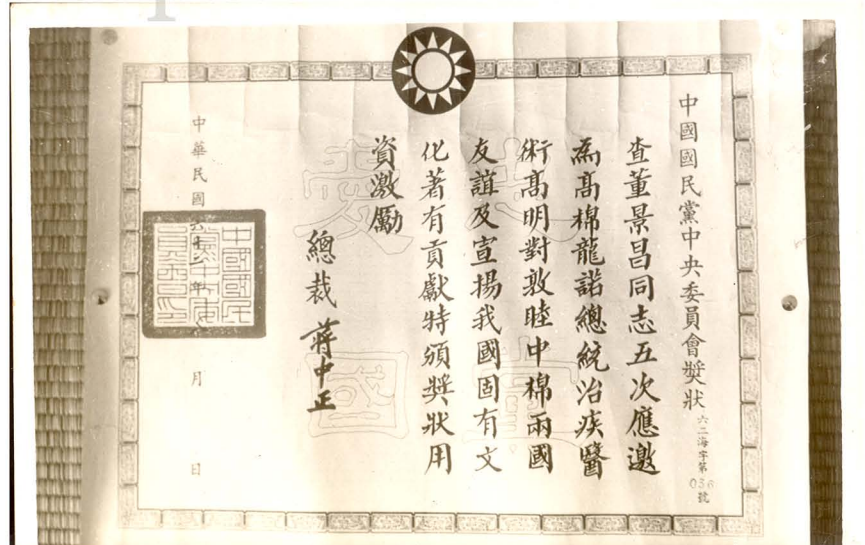 中國國民黨中央委員會獎狀
六二海字第036號
查董景昌同志五次應邀
為高棉龍諾總統治疾醫
術高明對敦睦中棉兩國
友誼及宣揚我國固有文
化著有貢獻特頒獎狀用
資激勵
總裁 蔣中正
中華民國六十二年 月 日
忠黨
愛國